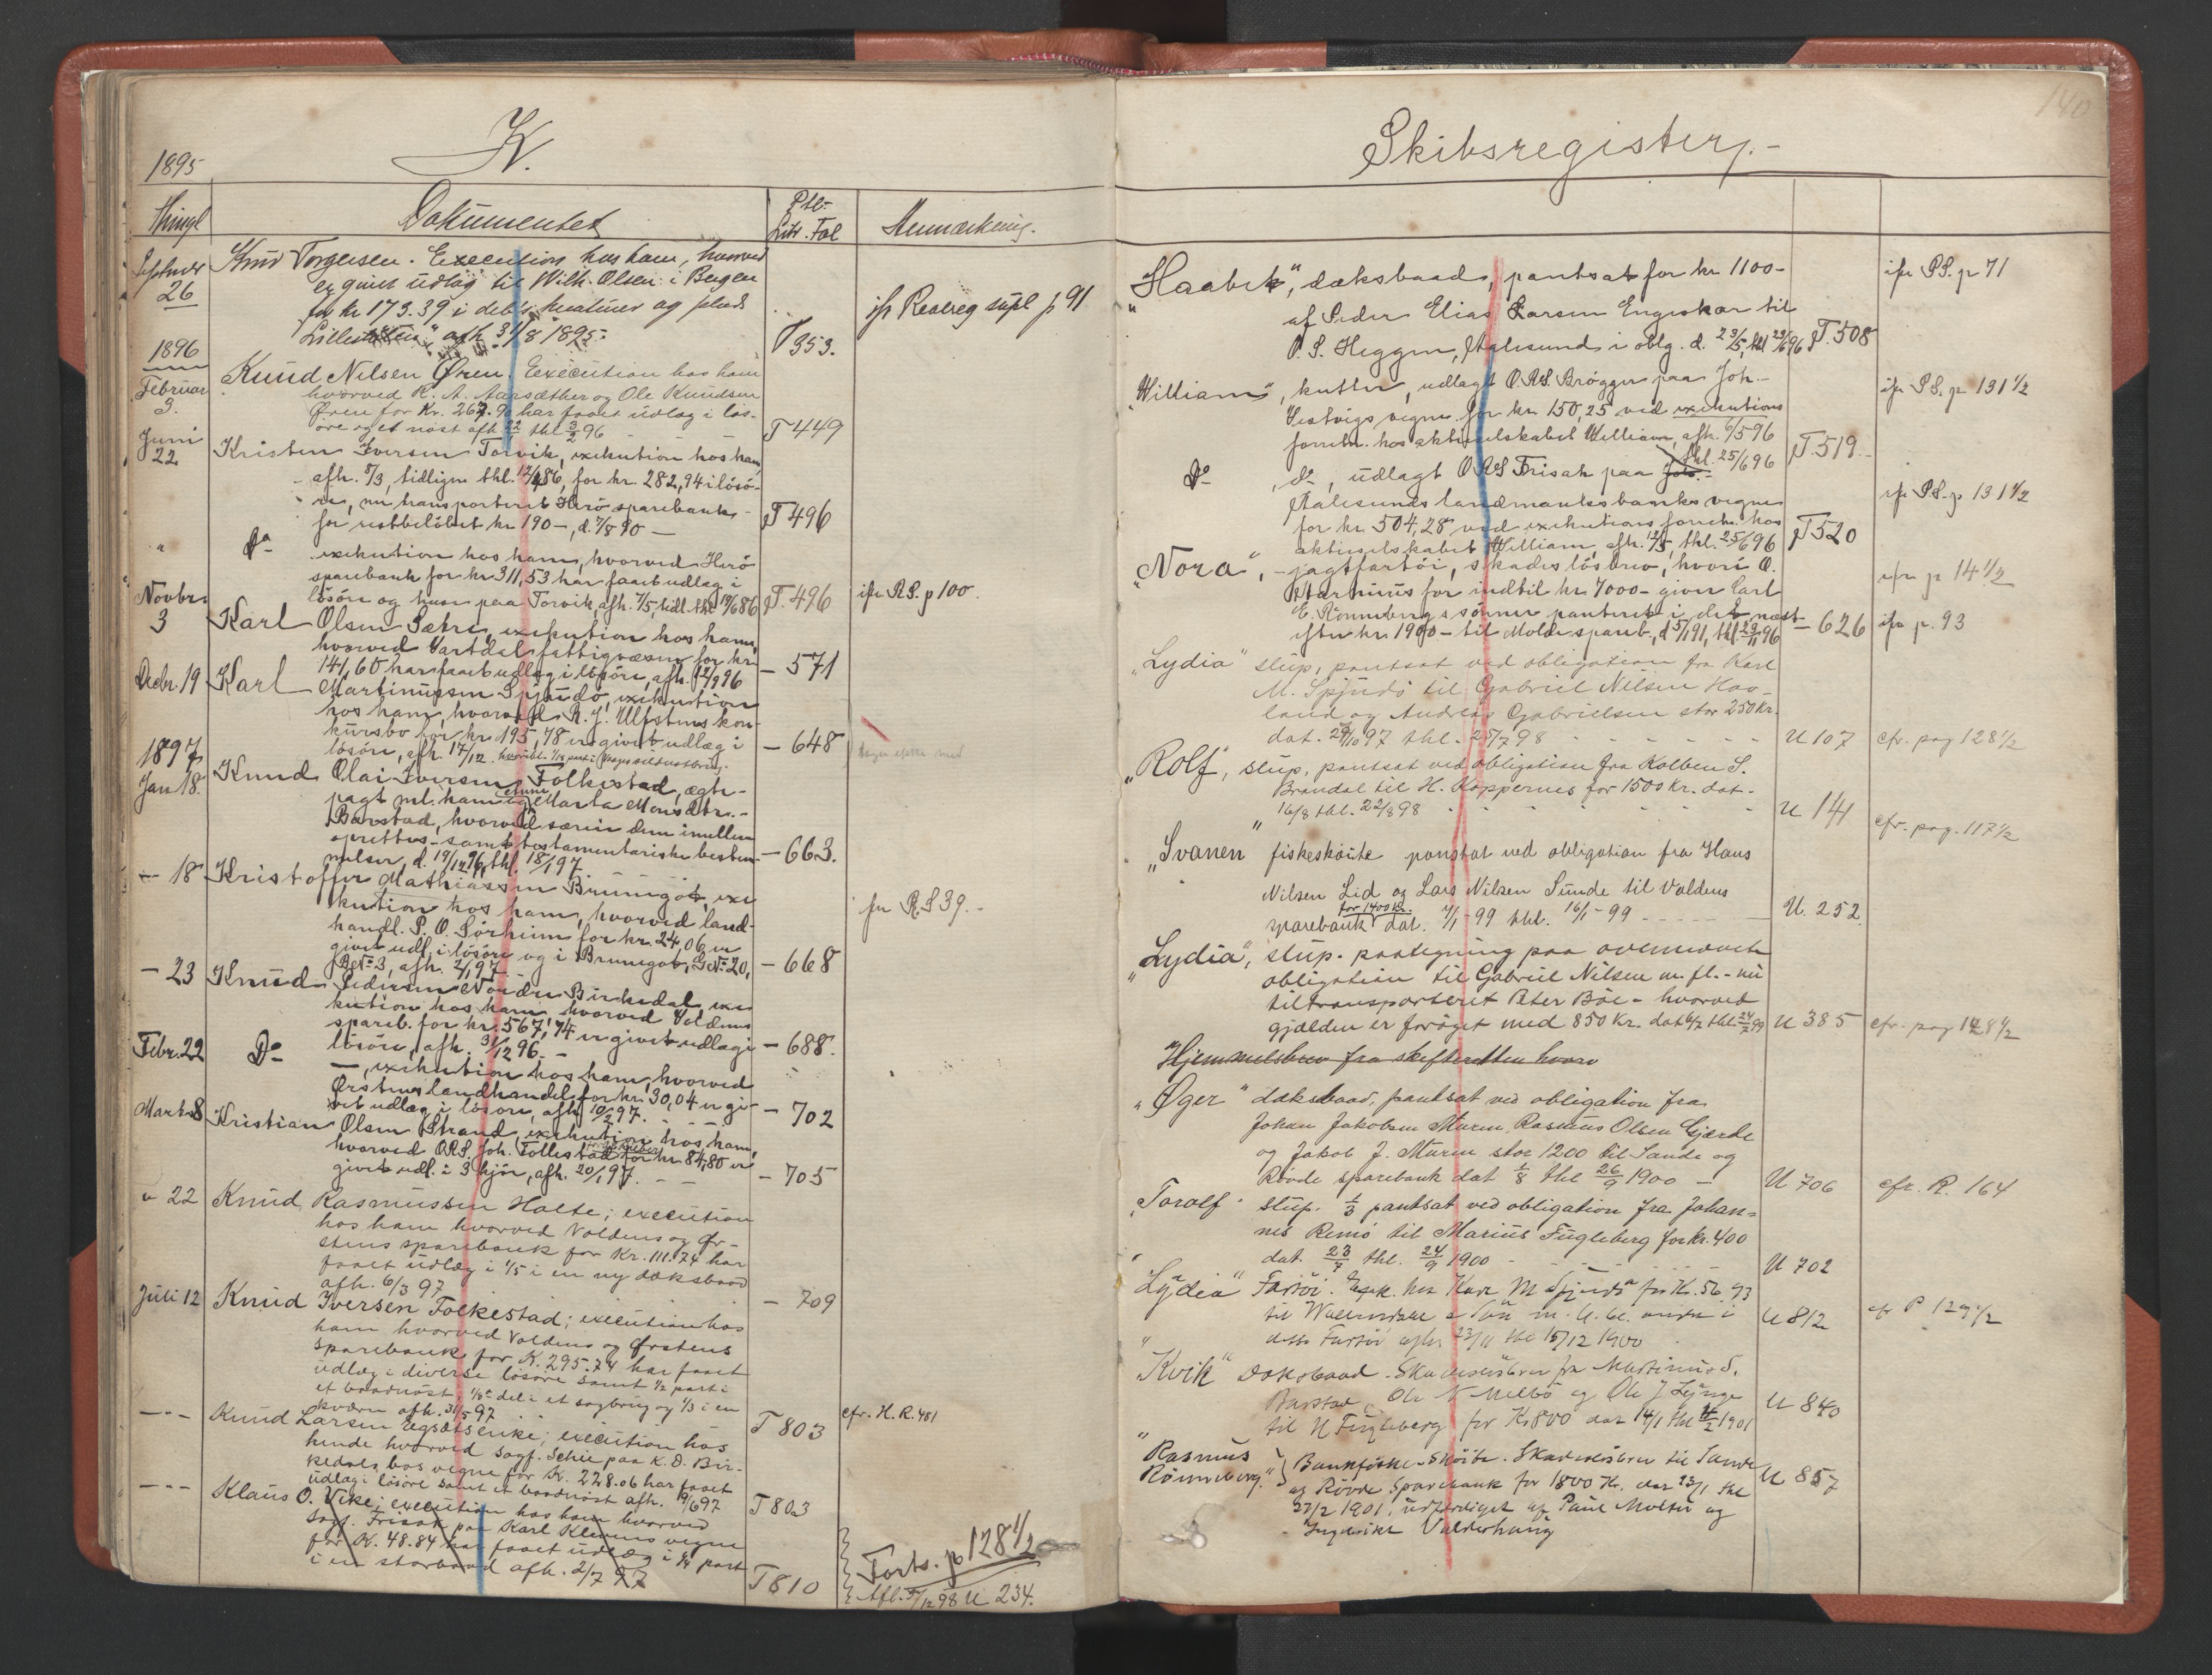 K.
1895
Thingl
Dokumentet
Ptb.
Litr. Fol
Anmærkning.
Septmbr
26
Knud Torgersen. Execution hos ham, hvorved
er givet udlæg til Wilh. Olsen i Bergen
for kr 173.39 i deb's
afh. 31/8 1895.
T 353.
ifr Realreg supl p 91
1896
Februar
3.
Knud Nilsen Øren. Execution hos ham
hvorved K. A. Aarsæther og Ole Knudsen
Øren for Kr. 267.90 har faaet udlæg i løs-
øre og et nøst afh 22/1 thl 3/2 96
T 449
Juni
22
Kristen Iversen Torvik, exekution hos ham,
afh. 8/3, tidligere thl. 12/4 86, for kr 282,94 i løsø-
re, nu transporteret Herø sparebank
for restbeløbet kr 190 –, d. 7/8 90 –
T 496
"
Do
exekution hos ham, hvorved Herø
sparebank for kr 311,53 har faaet udlæg i
løsøre og huse paa Torvik, afh. 7/5, tidl. thl. 12/6 86
T. 496
ifr R.S. p 100.
Novbr.
3
Karl Olsen Sætre, exekution hos ham,
hvorved Vartdals fattigvæsen for kr
141,60 har faaet udlæg i løsøre, afh. 12/9 96
– 571
Decbr. 19
Karl Martinussen Spjudø, exekution
hos ham, hvorved R. J. Ulfstens kon-
kursbo for kr 195,78 er givet udlæg i
løsøre, afh. 17/12
– 648
1897
Jan 18.
Knud Olai Iversen Folkestad, ægte-
pagt ml. ham og Marta Monsdtr.
Barstad, hvorved særeie dem imellem
oprettes – samt testamentariske bestem-
melser, d. 19/12 96, thl. 18/1 97
– 663.
– 18
Kristoffer Mathiassen Brunegot, exe-
kution hos ham, hvorved land-
handl. P. O. Sørheim for kr. 24,06 er
givet udl. i løsøre og i Brunegot, G.No 20,
B.No 3, afh. 2/1 97
– 668
R.S 39.-
– 23
Knud Pedersen Nordre Birkedal, exe-
kution hos ham, hvorved Voldens
spareb. for kr. 567,74 er givet udlæg i
løsøre, afh. 31/12 96. –
– 688.
Febr. 22
Do
–, exekution hos ham, hvorved
Ørstens landhandel for kr. 30,04 er gi-
vet udlæg i løsøre, afh. 10/2 97.
– 702
Marts 8
Kristian Olsen Strand, exekution hos ham,
hvorved O.R.S. Joh. Follestad for kr 84,80 er
givet udl. i 3 kjør, afh. 20/1 97.
– 705
" 22
Knud Rasmussen Holte; execution
hos ham hvorved Voldens og Ør-
stens sparebank for Kr. 111.74 har
faaet udlæg i 1/5 i en ny dæksbaad
afh. 6/3 97
– 709
Juli 12
Knud Iversen Folkestad; execution hos
ham hvorved Voldens og Ørstens
sparebank for K. 295.74 har faaet
udlæg i diverse løsøre samt 1/2 part i
et baadnøst, 1/8 del i et sagbrug og 1/3 i en
kværn afh. 31/5 97
T 803
cfr. H. R. 481
– " –
Knud Larsen Egsætseike; execution hos
hende hvorved Sagf. Schie paa K. D. Bir-
kedals bos vegne for Kr. 228.06 har faaet
udlæg i løsøre samt et baadnøst afh. 9/6 97
T 803
– " –
Klaus O. Vike; execution hos ham hvorved
Sagf. Frisak paa Karl Klevens vegne
for Kr. 48.84 har faaet udlæg i 1/4 part
i en storbaad afh. 2/7 97
T 810
Forts. p 128 1/2
Afl. 5/12 98 U 234.
140
Skibsregister.-
"Haabet", dæksbaad, pantsat for kr 1100-
af Peder Elias Larsen Engeskar til
O. S. Heggen, Aalesund i oblg. d. 23/5, thl 23/6 96
T. 508
ifr P.S. p 71
"William", kutter, udlagt O.R.S. Brøgger paa Joh.
Vestvigs vegne for kr 150,25 ved exekutions
forretn. hos aktieselskabet William, afh. 6/5 96
thl. 25/6 96
T. 519.
ifr P.S. p 131 1/2
Do, do, udlagt O.R.S Frisak paa Joh.
Aalesunds landmandsbanks vegne
for kr 504,28 ved exekutions forretn. hos
aktieselskabet William, afh. 12/5, thl. 25/6 96
T 520
ifr P.S. p 131 1/2
"Nora", - jagtfartøi, skadesløsbrev, hvori O.
Harnuus for indtil kr 7000 – giver Carl
E. Rønnebergs sønner panteret i det næst
efter kr 1900 – til Molde spareb., d 5/1 91, thl 23/11 96
– 626
ifr p 14 1/2
ifr p. 93
"Lydia" slup, pantsat ved obligation fra Karl
M. Spjudø til Gabriel Nilsen Hov-
land og Andreas Gabrielsen stor 250 Kr.
dat. 29/10 97 thl. 25/7 98
U 107
cfr. pag 128 1/2
"Rolf", slup, pantsat ved obligation fra Kolben S.
Brandal til H. Koppernes for 1500 kr. dat.
16/8 thl. 22/8 98
U 141
cfr. pag. 117 1/2
"Svanen" fiskeskøite pantsat ved obligation fra Hans
Nilsen Lid og Lars Nilsen Sunde til Voldens
for 1400 kr.
sparebank dat. 4/1 – 99 thl. 16/1 – 99
U. 252
"Lydia", slup. paategning paa ovennævnte
obligation til Gabriel Nilsen m. fl. – nu
tiltransporteret Peter Bøe – hvorved
gjælden er forøget med 850 Kr. dat 6/7 thl. 24/7 99
U 385
cfr. pag 128 1/2
Hjemmelsbrev fra skifteretten hvori
"Øger" dæksbaad, pantsat ved obligation fra
Johan Jakobsen Muren, Rasmus Olsen Gjærde
og Jakob J. Muren stor 1200 til Sande og
Røvde sparebank dat 1/8 thl 26/9 1900 –
U 706
cfr. R. 164
"Torolf" slup. 1/3 pantsat ved obligation fra Johan-
nes Remø til Marius Fugleberg for kr. 400
dat. 23/7 thl. 24/9 1900
U 702
"Lydia" Fartøi. Exek. hos Karl M Spjudø for K. 56 93
til i
dette Fartøi afh 23/11 thl 15/12 1900
U 812
cfr P 129 1/2
"Kvik" Dæksbaad. Skadesløsbrev fra Martinus S.
Barstad, Ole N Melbø og Ole J Lyngs
til N Fugleberg for Kr 800 dat 14/1 thl 4/2 1901
U 840
"Rasmus
Rønneberg" Bankfiske-Skøite. Skadesløsbrev til Sande
og Røvde Sparebank for 1800 Kr. dat 23/1 thl
27/2 1901, udferdiget af Paul Moltu og
Ingebrikt Valderhaug
U 857